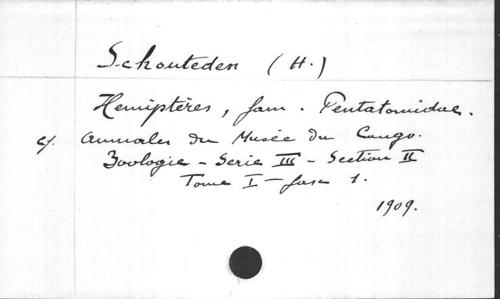 Schouteden (H.)
Hemiptères, fam. Pentatomidae.
c/. Annales du Musée du Congo.
Zoologie - Serie III - Section II
Tome I - fasc 1.
1909.